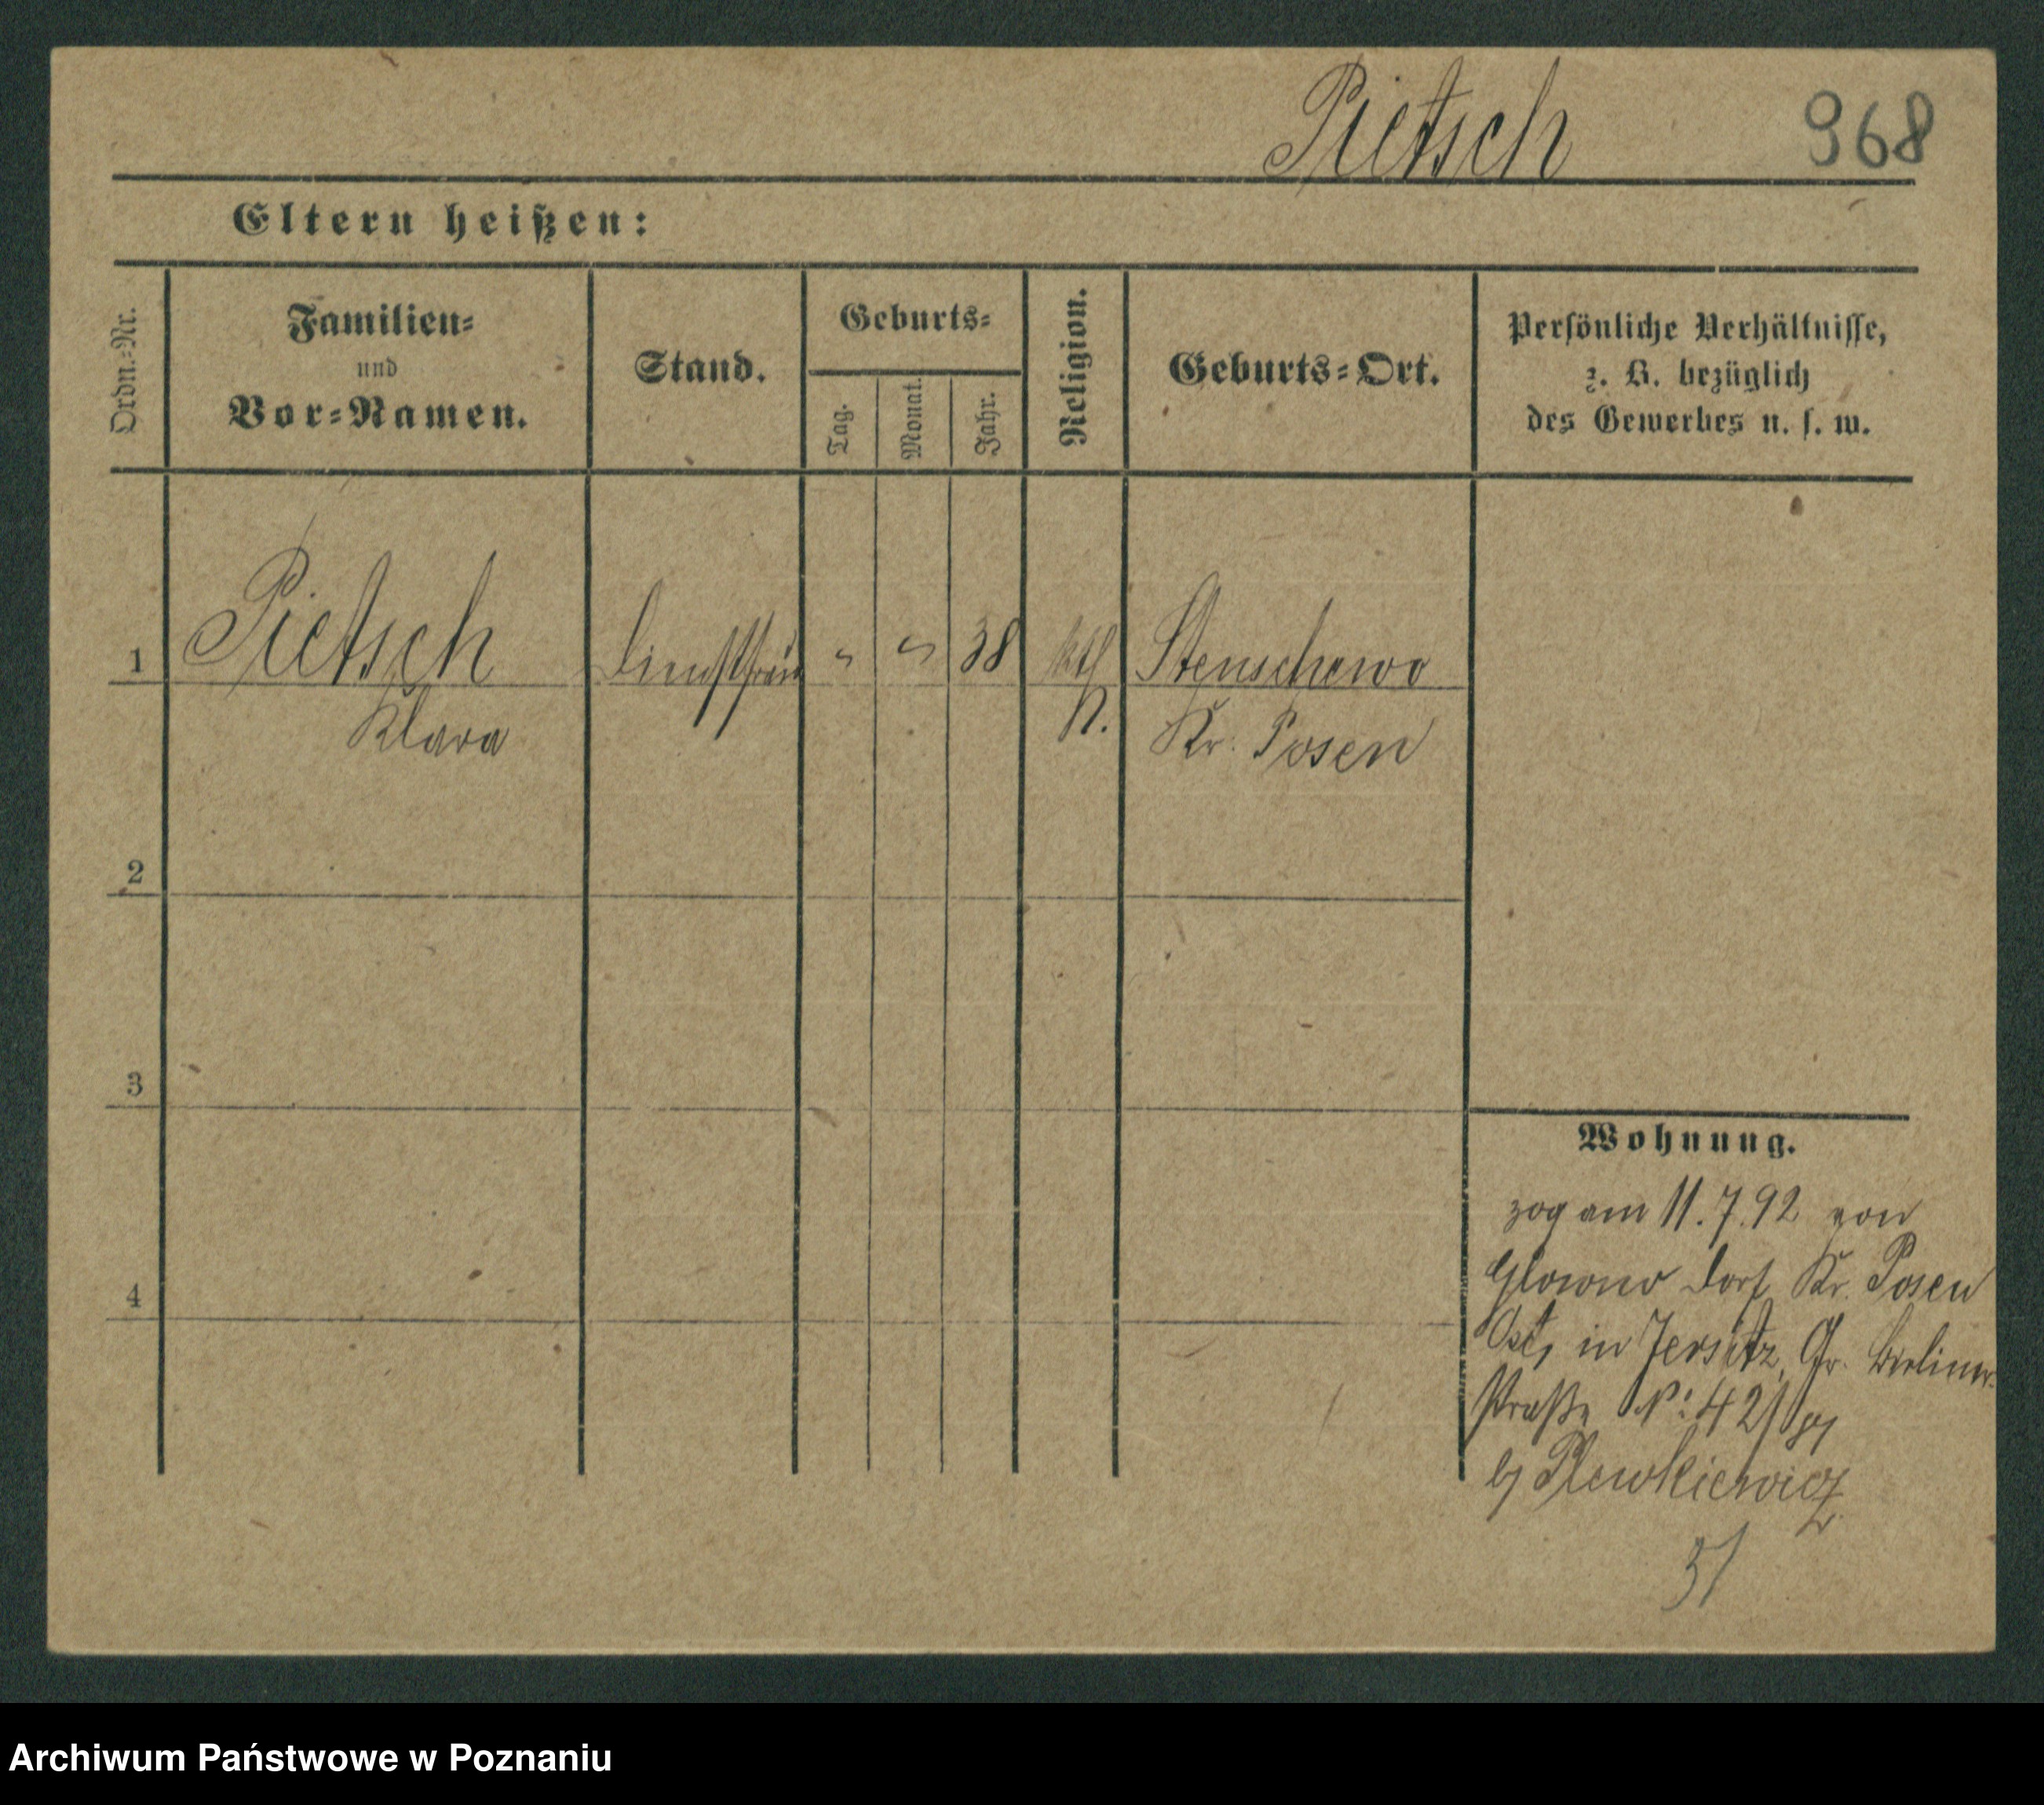 Pietsch 968
Eltern heißen:
Ordn.=Nr.
Familien=
und
Vor=Namen.
Stand.
Geburts=
Tag.
Monat.
Jahr.
Religion.
Geburts=Ort.
Persönliche Verhältnisse,
z. B. bezüglich
des Gewerbes u. s. w.
1 Pietsch 38 Stenschewo
Klara Kr. Posen
2
3
4
Wohnung.
zog am 11.7.92 von
Glowno Dorf Kr. Posen
Ost, in Jersitz, Gr. Berliner-
straße No: 42
Plewkiewicz
Archiwum Państwowe w Poznaniu